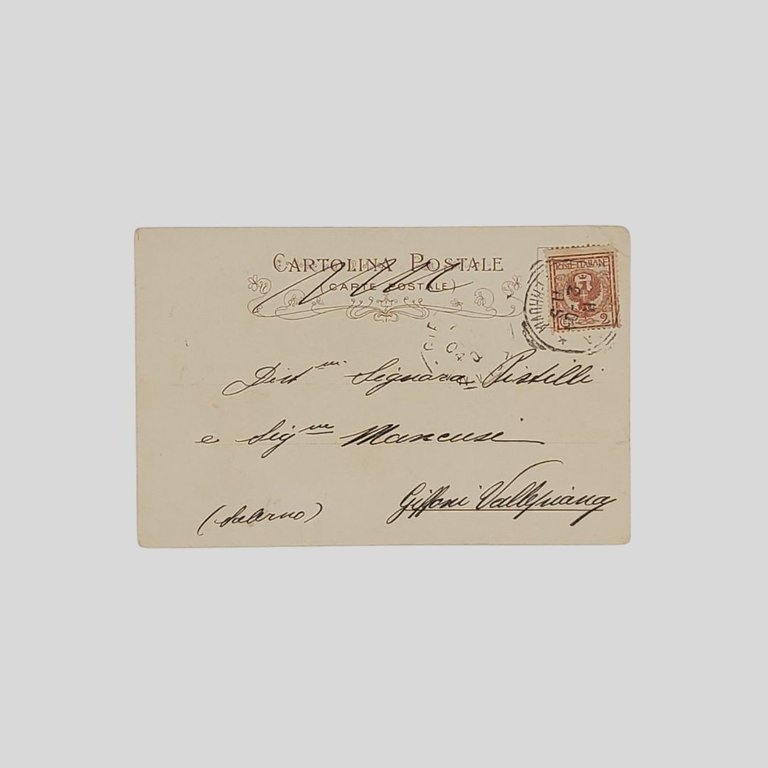 CARTOLINA POSTALE
(CARTE POSTALE)
POSTE ITALIANE
2
Dist.me Signora Pistilli
e Sig.ne Mancusi
Giffoni Vallepiana
(Salerno)